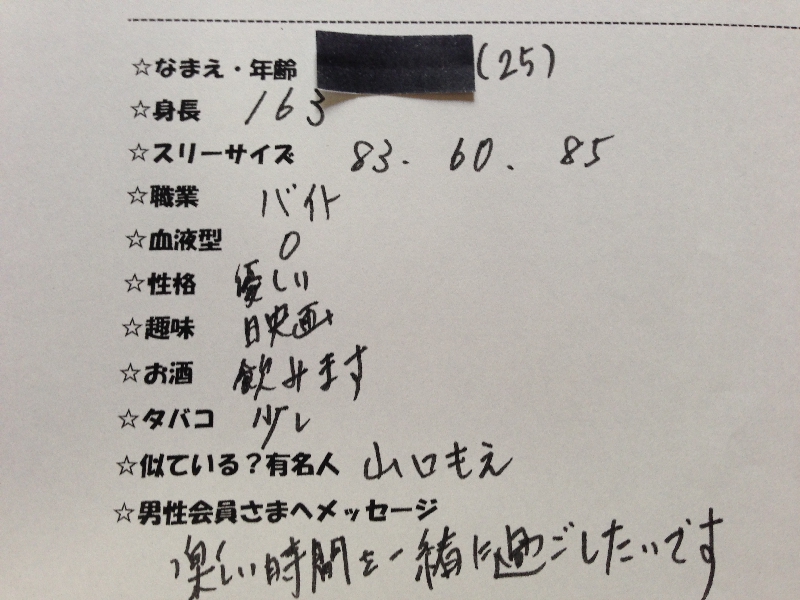 ☆なまえ・年齢 (25)
☆身長 163
☆スリーサイズ 83. 60. 85
☆職業 バイト
☆血液型 O
☆性格 優しい
☆趣味 映画
☆お酒 飲みます
☆タバコ 少し
☆似ている？有名人 山口もえ
☆男性会員さまへメッセージ
楽しい時間を一緒に過ごしたいです